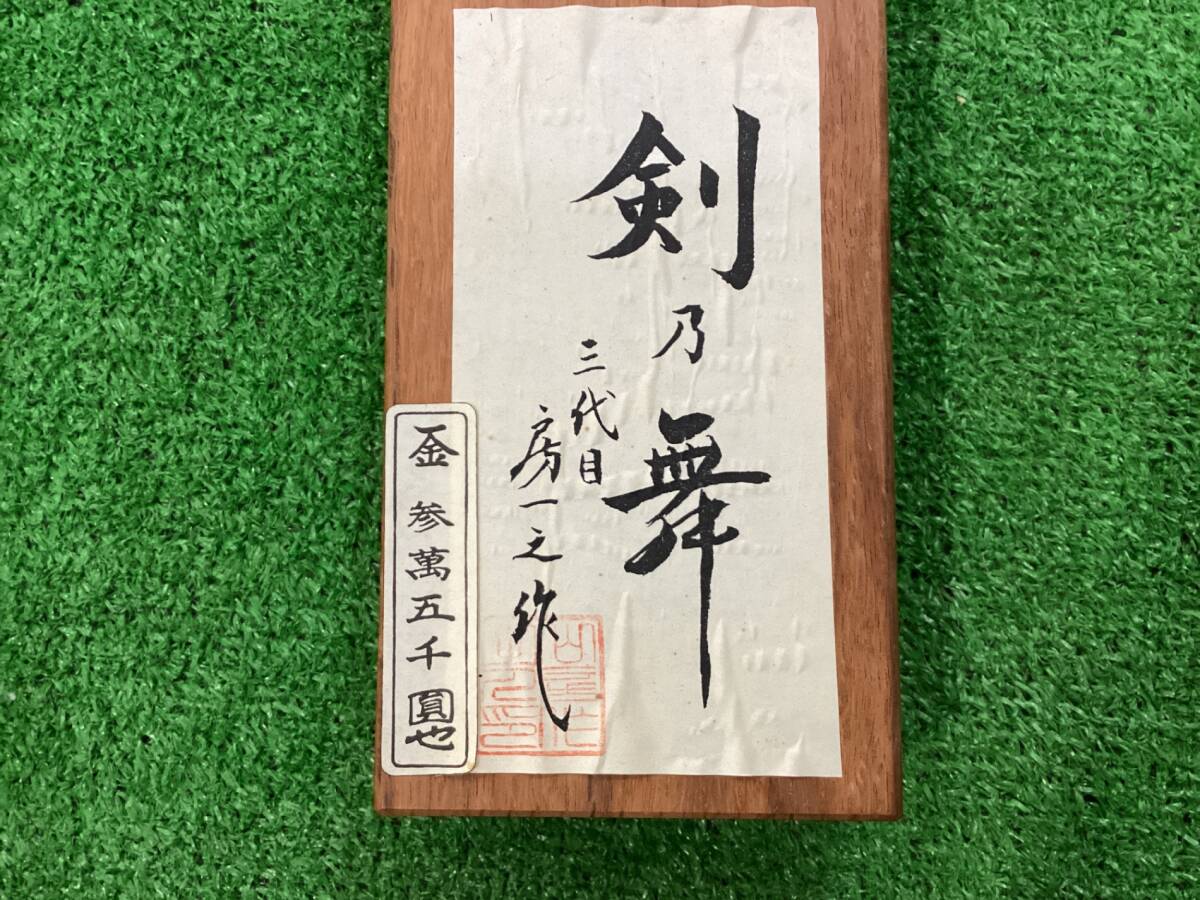 剣乃舞
三代目
房一之作
金 参萬五千圓也